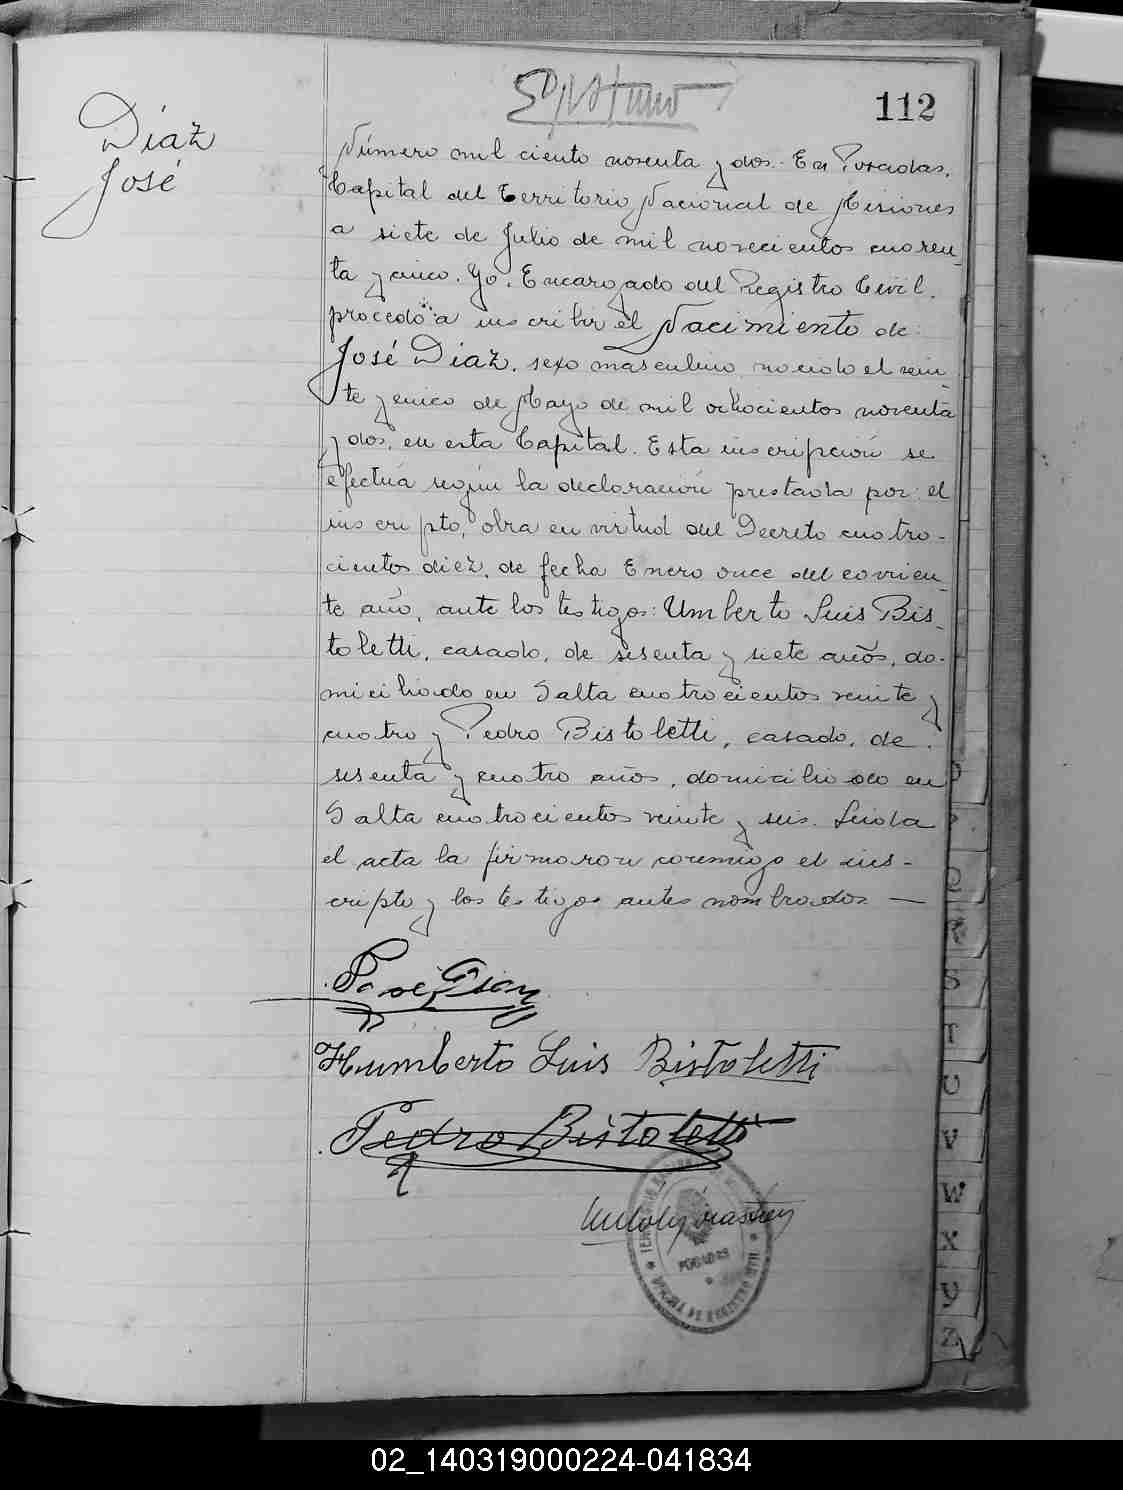 112
Díaz
José
Número mil ciento noventa y dos.- En Posadas,
Capital del Territorio Nacional de Misiones
a siete de Julio de mil novecientos cuaren_
ta y cinco. Yo, Encargado del Registro Civil,
procedo a inscribir el Nacimiento de:
José Díaz, sexo masculino, nacido el vein_
te y cinco de Mayo de mil ochocientos noventa
y dos, en esta Capital. Esta inscripción se
efectúa según la declaración prestada por: el
inscripto, obra en virtud del Decreto cuatro-
cientos diez, de fecha Enero once del corrien_
te año, ante los testigos: Umberto Luis Bis_
toletti, casado, de sesenta y siete años, do-
miciliado en Salta cuatrocientos veinte y
cuatro y Pedro Bistoletti, casado, de
sesenta y cuatro años, domiciliado en
Salta cuatrocientos veinte y seis. Leida
el acta la firmaron conmigo el ins-
cripto y los testigos antes nombrados —
José Díaz
Humberto Luis Bistoletti
Pedro Bistoletti
POSADAS
Q
R
S
T
U
V
W
X
Y
Z
02_140319000224-041834